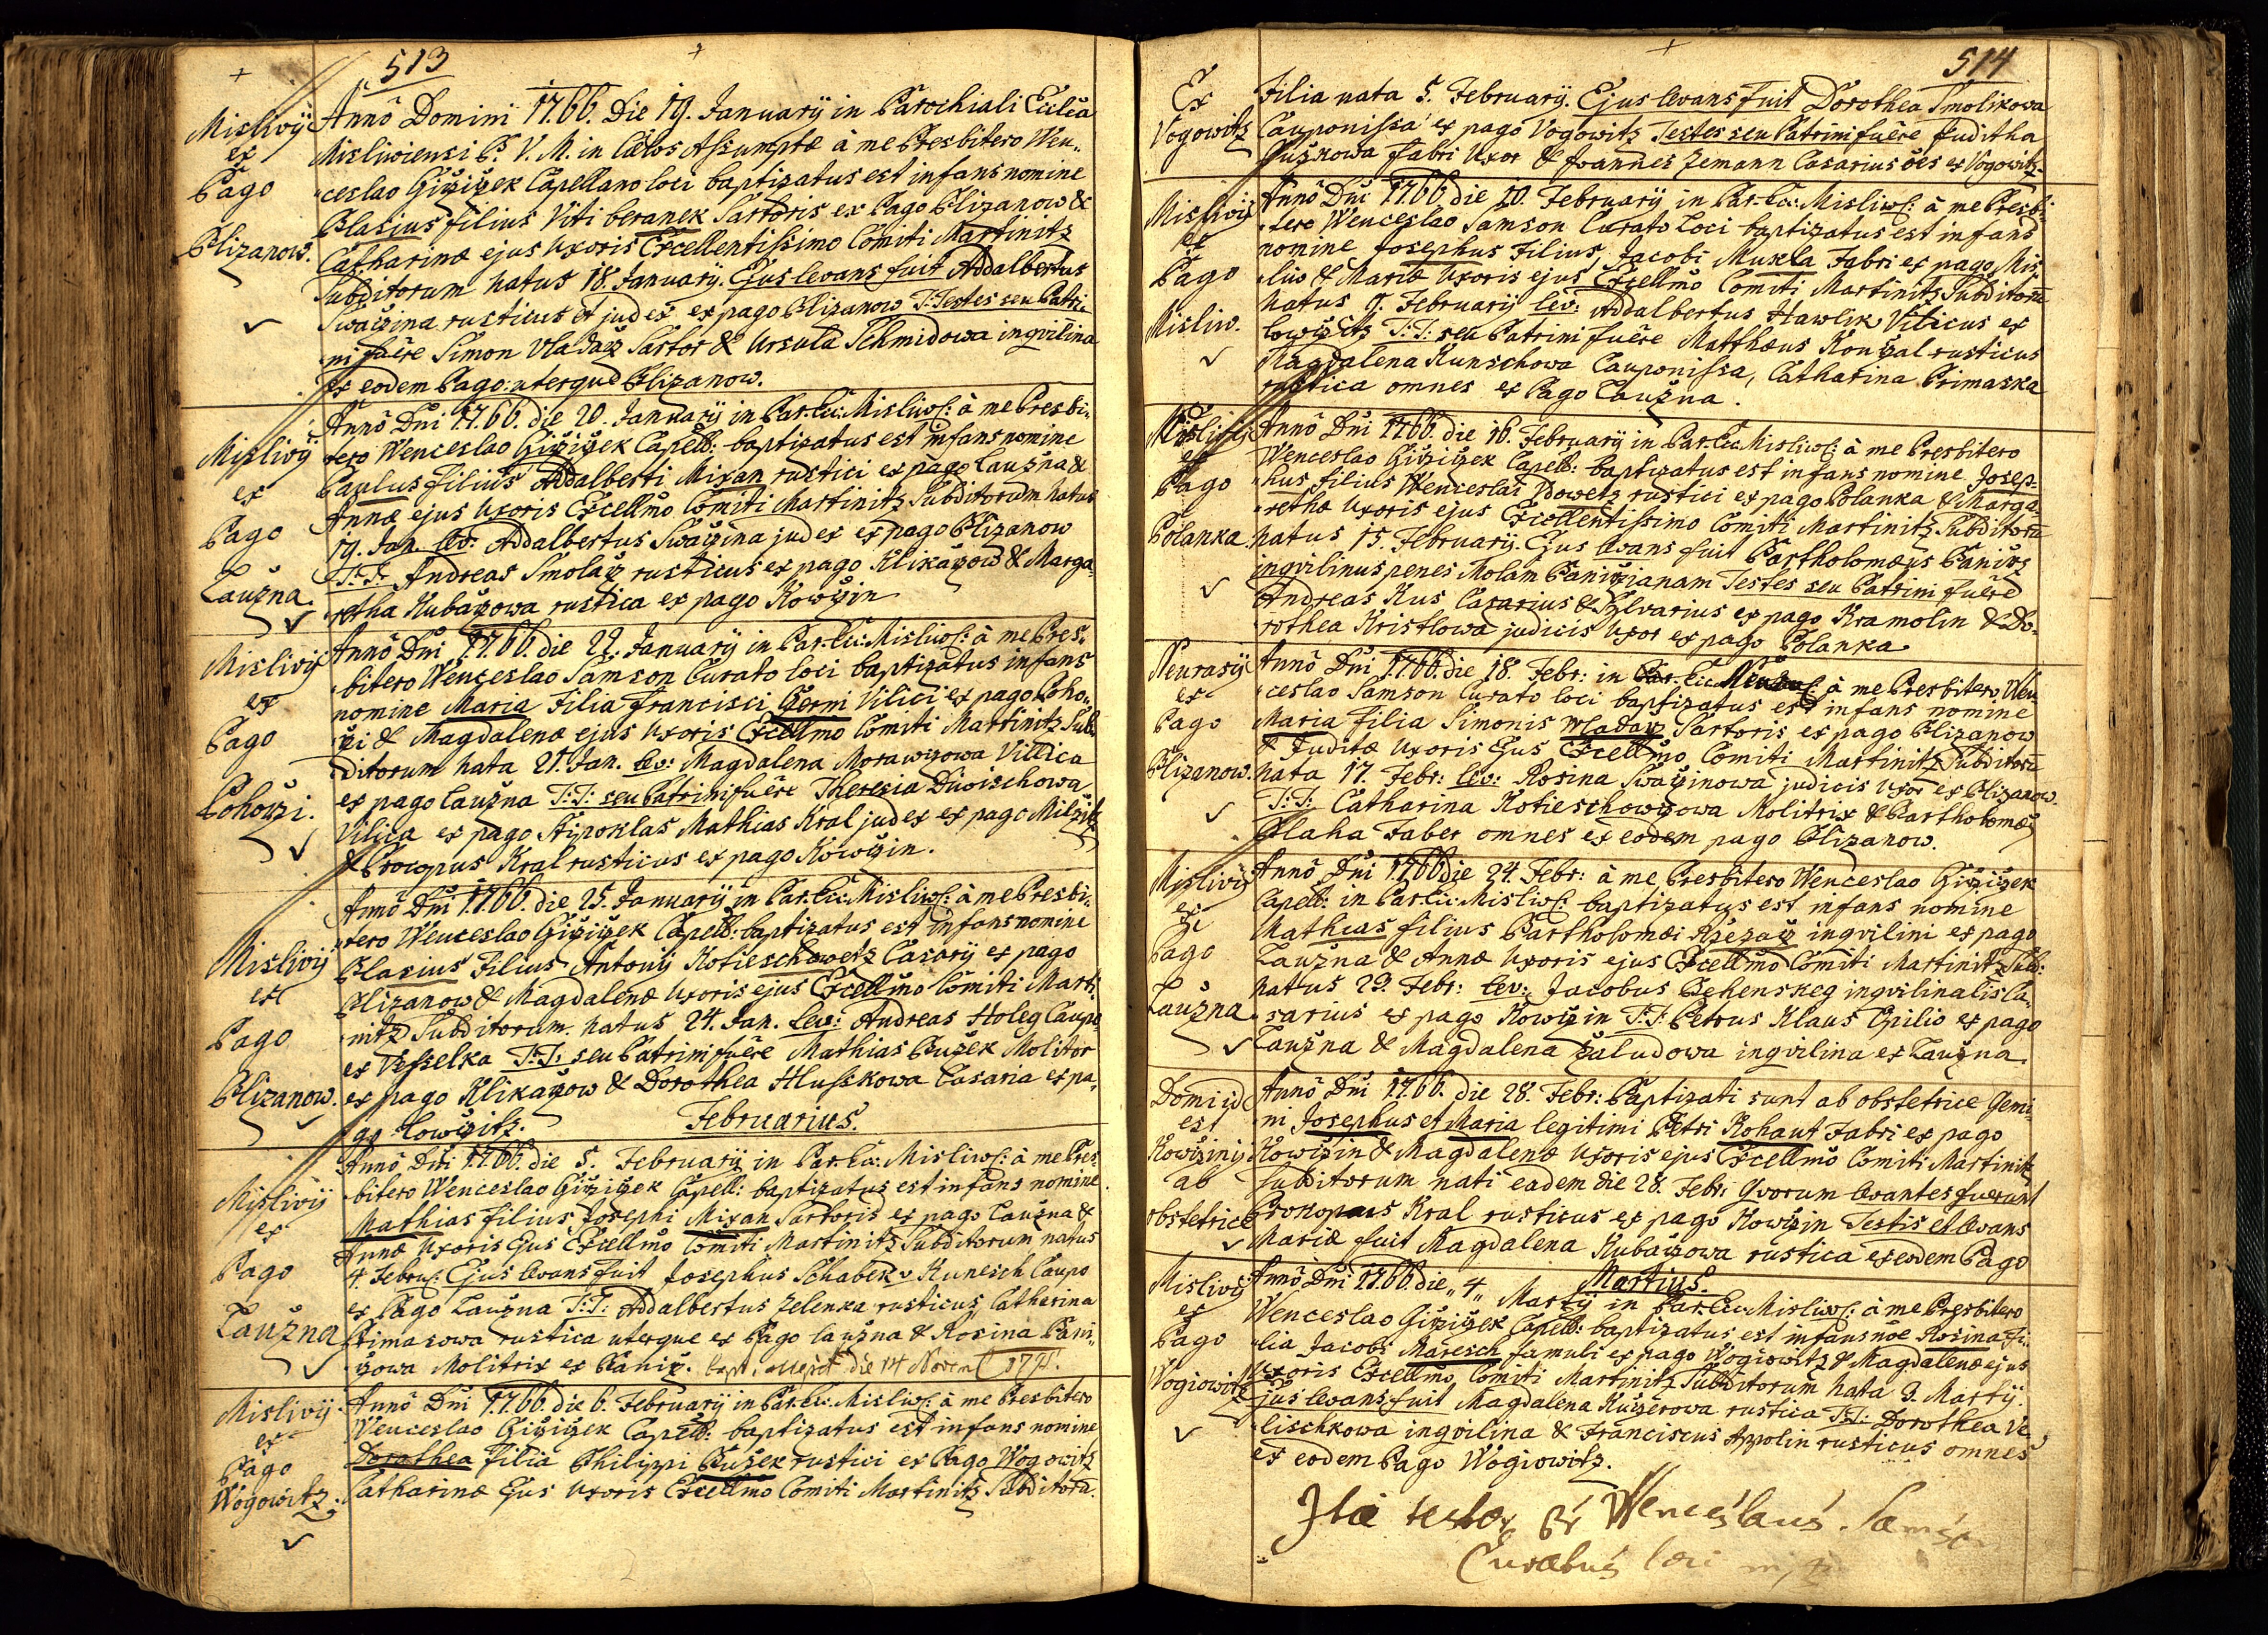 513
Mislivij
ex
Pago
Blizanow.
Anno Domini 1766. Die 19. Januarij in Parochiali Ecclia
Misliwiensi B. V. M. in Cælos Assumptæ à me Presbitero Wen„
„ceslao Gižižek Capellano loci baptizatus est infans nomine
Blasius filius Viti beranek Sartoris ex Pago Blizanow &
Catharinæ ejus Uxoris Excellentissimo Comiti Martinitz
Subditorum natus 18. Januarij. Ejus levans fuit Addalbertus
Swačina rusticus et judex ex pago Blizanow T: Testes seu Patri„
„ni fuêre Simon Vladarz Sartor & Ursula Schmidowa inqvilina
ex eodem Pago: uterque Blizanow.
Mislivij
ex
Pago
Laužna.
Anno Dni 1766. die 20. Januarij in Par. Ecc: Misliws: à me Presbi„
tero Wenceslao Gižižek Capell: baptizatus est infans nomine
Paulus Filius Addalberti Mixan rustici ex pago Laužna &
Annæ ejus Uxoris Excellmo Comiti Martinitz Subditorum natus
19. Jan. lev: Addalbertus Swačina judex ex pago Blizanow
T: T: Andreas Smolarz rusticus ex pago Klikařow & Marga„
„retha Kubařzowa rustica ex pago Kowčin
Mislivij
ex
Pago
Pohorži.
Anno Dni 1766. die 22. Januarij in Par. Ecc: Misliws: à me Pres„
bitero Wenceslao Samson Curato loci baptizatus infans
nomine Maria Filia Francisci Germi Vilici ex pago Poho„
„rži & Magdalenæ ejus Uxoris Excellmo Comiti Martinitz Sub„
ditorum nata 21. Jan. lev: Magdalena Morawczowa Villica
ex pago Laužna T: T: seu Patrini fuêre Theresia Dworschowa
Vilica ex pago Stipoklas Mathias Kral judex ex pago Milčitz
& Procopus Kral rusticus ex pago Kowčin.
Mislivij
ex
Pago
Blizanow.
Anno Dni 1766. die 25. Januarij in Par. Ecc: Misliws: à me Presbi„
„tero Wenceslao Gižižek Capell: baptizatus est infans nomine
Blasius Filius Antonij Kotieschowetz Casarij ex pago
Blizanow & Magdalenæ Uxoris ejus Excellmo Comiti Marti„
„nitz Subditorum. natus 24. Jan. lev: Andreas Holeg Caupo
ex Vesselka T: T: seu Patrini fuêre Mathias Bužek Molitor
ex pago Klikařow & Dorothea Hlusskowa Casaria ex pa„
go Lowčitz.
Februarius.
Mislivij
ex
Pago
Laužna
Anno Dni 1766. die 5. Februarij in Par. Ecc: Misliws: à me Pres„
bitero Wenceslao Gižižek Capell: baptizatus est infans nomine
Mathias filius Josephi Mixan Sartoris ex pago Laužna &
Annæ Uxoris Ejus Excellmo Comiti Martinitz Subditorum natus
4. Febru: Ejus levans fuit Josephus Schabek v Kunesch Caupo
ex Pago Laužna T: T: Addalbertus Zelenka rusticus, Catharina
Primasowa rustica uterque ex Pago Laužna & Rosina Pani„
„žowa Molitrix ex Paniž. die 14 Novem
Mislivij
ex
Pago
Wogowitz.
Anno Dni 1766. die 6. Februarij in Par. Ecc: Misliws: à me Presbitero
Wenceslao Gižižek Capell: baptizatus est infans nomine
Dorothea Filia Philippi Bužek rustici ex Pago Wogowitz
Catharinæ Ejus Uxoris Excellmo Comiti Martinitz Subditoru.
514
Ex
Vogowitz
Filia nata 5. Februarij. Ejus levans fuit Dorothea Smolikowa
Cauponissa ex pago Vogowitz Testes seu Patrini fuêre Juditha
Bužkowa Fabri Uxor & Joannes Zemann Casarius oes ex Vogowitz
Mislivij
ex
Pago
Misliw.
Anno Dni 1766. die 10. Februarij in Par. Ecc: Misliws: à me Presbi„
„tero Wenceslao Samson Curato Loci baptizatus est infans
nomine Josephus Filius, Jacobi Muxla Fabri ex pago Mis„
„liw & Mariæ Uxoris ejus Excellmo Comiti Martinitz Subditoru
natus 9. Februarij lev: Addalbertus Hawlik Vilicus ex
Lowčitz T: T: seu Patrini fuêre Matthæus Konžal rusticus
Magdalena Kunschowa Cauponissa, Catharina Primaska
rustica omnes ex Pago Laužna.
Mislivij
ex
Pago
Polanka.
Anno Dni 1766. die 16. Februarij in Par. Ecc: Misliws: à me Presbitero
Wenceslao Gižižek Capell: baptizatus est infans nomine Josep„
„hus filius Wenceslai Vdowetz rustici ex pago Polanka & Marga„
„rethæ Uxoris ejus Excellentissimo Comiti Martinitz Subditoru
natus 15. Februarij. Ejus levans fuit Bartholomæus Paniž
inqvilinus penes Molam Panižianam Testes seu Patrini fuêre
Andreas Kus Casarius & Sylvarius ex pago Kramolin & Do„
rothea Kristlowa judicis Uxor ex pago Polanka
Neurasij
ex
Pago
Blizanow.
Anno Dni 1766. die 18. Febr: in Par. Ecc: à me Presbitero Wen„
„ceslao Samson Curato loci baptizatus est infans nomine
Maria Filia Simonis Wladarz Sartoris ex pago Blizanow
& Juditæ Uxoris Ejus Excellmo Comiti Martinitz Subditoru
nata 17. Febr: lev: Rosina Swačinowa judicis Uxor ex Blizanow.
T: T: Catharina Kotieschowczowa Molitrix & Bartholomæus
Blaha Faber omnes ex eodem pago Blizanow.
Mislivij
ex
Pago
Laužna
Anno Dni 1766. die 24. Febr: à me Presbitero Wenceslao Gižižek
Capell: in Par. Ecc: Misliws: baptizatus est infans nomine
Mathias filius Bartholomæi Ržezařz inqvilini ex pago
Laužna & Annæ Uxoris ejus Excellmo Comiti Martinitz Sub:
natus 23. Febr: lev: Jacobus Behenskeg inqvilinalis Ca„
„sarius ex pago Kowčin T: T: Petrus Klaus Opilio ex pago
Laužna & Magdalena Žaludowa inqvilina ex Laužna.
Domi id
est
Kowčinij
ab
obstetrice
Anno Dni 1766. die 28. Febr: Baptizati sunt ab obstetrice Gemi„
ni Josephus et Maria legitimi Petri Kohaut Fabri ex pago
Kowčin & Magdalenæ Uxoris ejus Excellmo Comiti Martinitz
subditorum nati eadem die 28. Febr: Qvorum levantes fuerunt
Prokopus Kral rusticus ex pago Kowčin Testis et levans
Mariæ fuit Magdalena Kubařzowa rustica ex eodem Pago
Martius.
Mislivij
ex
Pago
Wogiowitz
Anno Dni 1766. die „4„ Martij in Par. Ecc: Misliws: à me Presbitero
Wenceslao Gižižek Capell: baptizatus est infans noe Rosina Fi„
„lia Jacobi Maresch famuli ex pago Wogiowitz & Magdalenæ ejus
Uxoris Excellmo Comiti Martinitz Subditorum nata 3. Martij.
Ejus levans fuit Magdalena Kučerowa rustica T: T: Dorothea Ve„
„lischkowa inqvilina & Franciscus Appolin rusticus omnes
ex eodem Pago Wogiowitz.
Ita testor Pr Wenceslaus Samson
Curatus loci mp